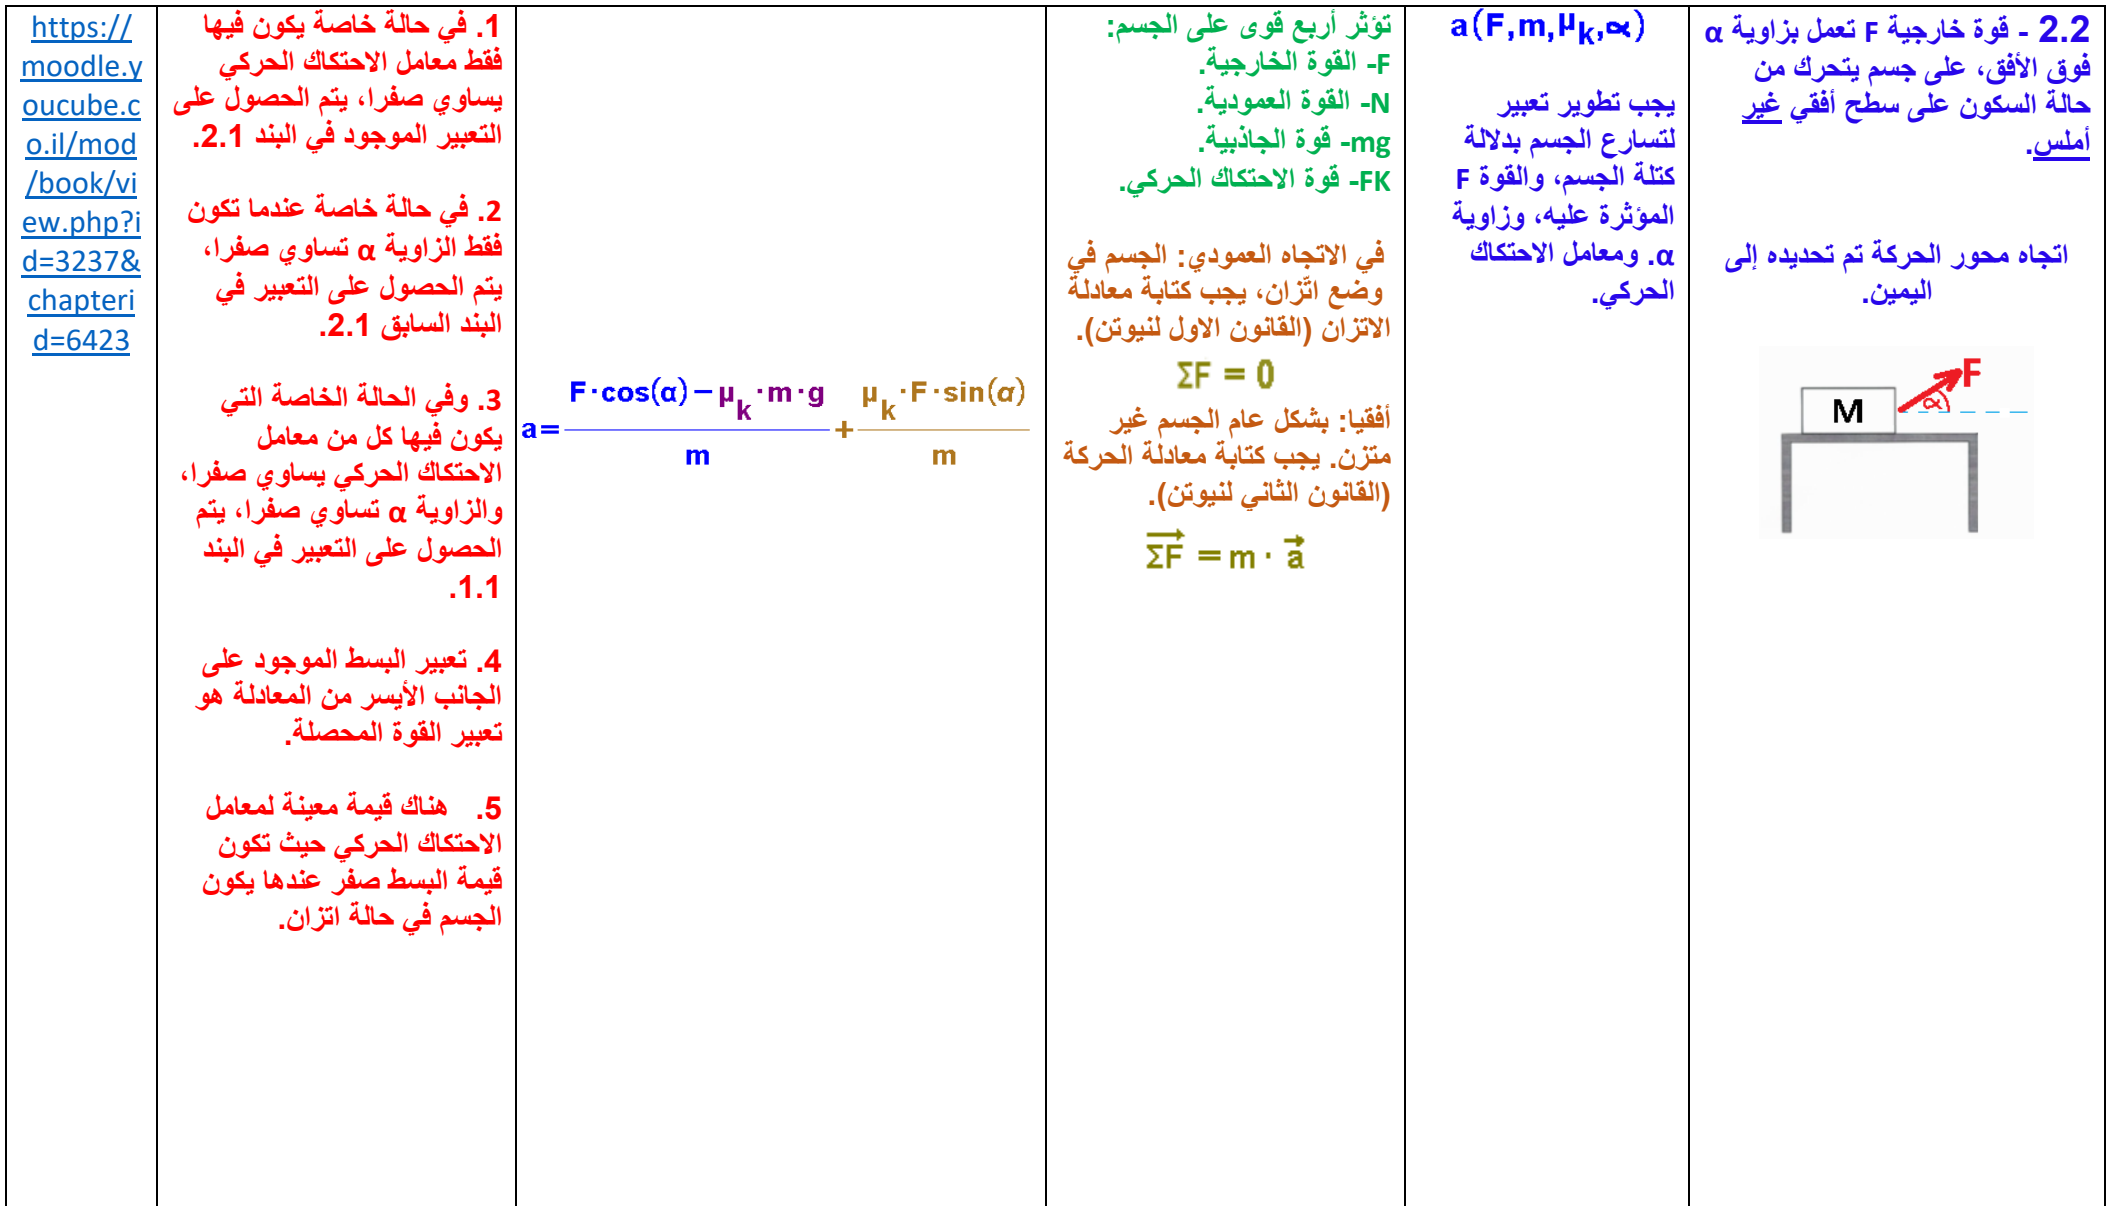 2.2 - قوة خارجية F تعمل بزاوية α
فوق الأفق، على جسم يتحرك من
حالة السكون على سطح أفقي غير
أملس.
اتجاه محور الحركة تم تحديده إلى
اليمين.
F
α
M
a(F,m,μk,α)
يجب تطوير تعبير
لتسارع الجسم بدلالة
كتلة الجسم، والقوة F
المؤثرة عليه، وزاوية
α. ومعامل الاحتكاك
الحركي.
تؤثر أربع قوى على الجسم:
F- القوة الخارجية.
N- القوة العمودية.
mg- قوة الجاذبية.
FK- قوة الاحتكاك الحركي.
في الاتجاه العمودي: الجسم في
وضع اتّزان، يجب كتابة معادلة
الاتزان (القانون الاول لنيوتن).
ΣF = 0
أفقيا: بشكل عام الجسم غير
متزن. يجب كتابة معادلة الحركة
(القانون الثاني لنيوتن).
ΣF⃗ = m · a⃗
a = (F·cos(α) − μk·m·g)/m + (μk·F·sin(α))/m
1. في حالة خاصة يكون فيها
فقط معامل الاحتكاك الحركي
يساوي صفرا، يتم الحصول على
التعبير الموجود في البند 2.1.
2. في حالة خاصة عندما تكون
فقط الزاوية α تساوي صفرا،
يتم الحصول على التعبير في
البند السابق 2.1.
3. وفي الحالة الخاصة التي
يكون فيها كل من معامل
الاحتكاك الحركي يساوي صفرا،
والزاوية α تساوي صفرا، يتم
الحصول على التعبير في البند
1.1.
4. تعبير البسط الموجود على
الجانب الأيسر من المعادلة هو
تعبير القوة المحصلة.
5. هناك قيمة معينة لمعامل
الاحتكاك الحركي حيث تكون
قيمة البسط صفر عندها يكون
الجسم في حالة اتزان.
https://
moodle.y
oucube.c
o.il/mod
/book/vi
ew.php?i
d=3237&
chapteri
d=6423